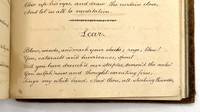 Close up his eyes, and draw the curtain close,
And let us all to meditation.
Lear.
Blow, winds, and crack your cheeks; rage, blow!
You, cataracts and hurricanoes, spout
Till you have drench'd our steeples, drown'd the cocks!
You sulph'rous and thought-executing fires,
Singe my white head. And thou, all-shaking thunder,